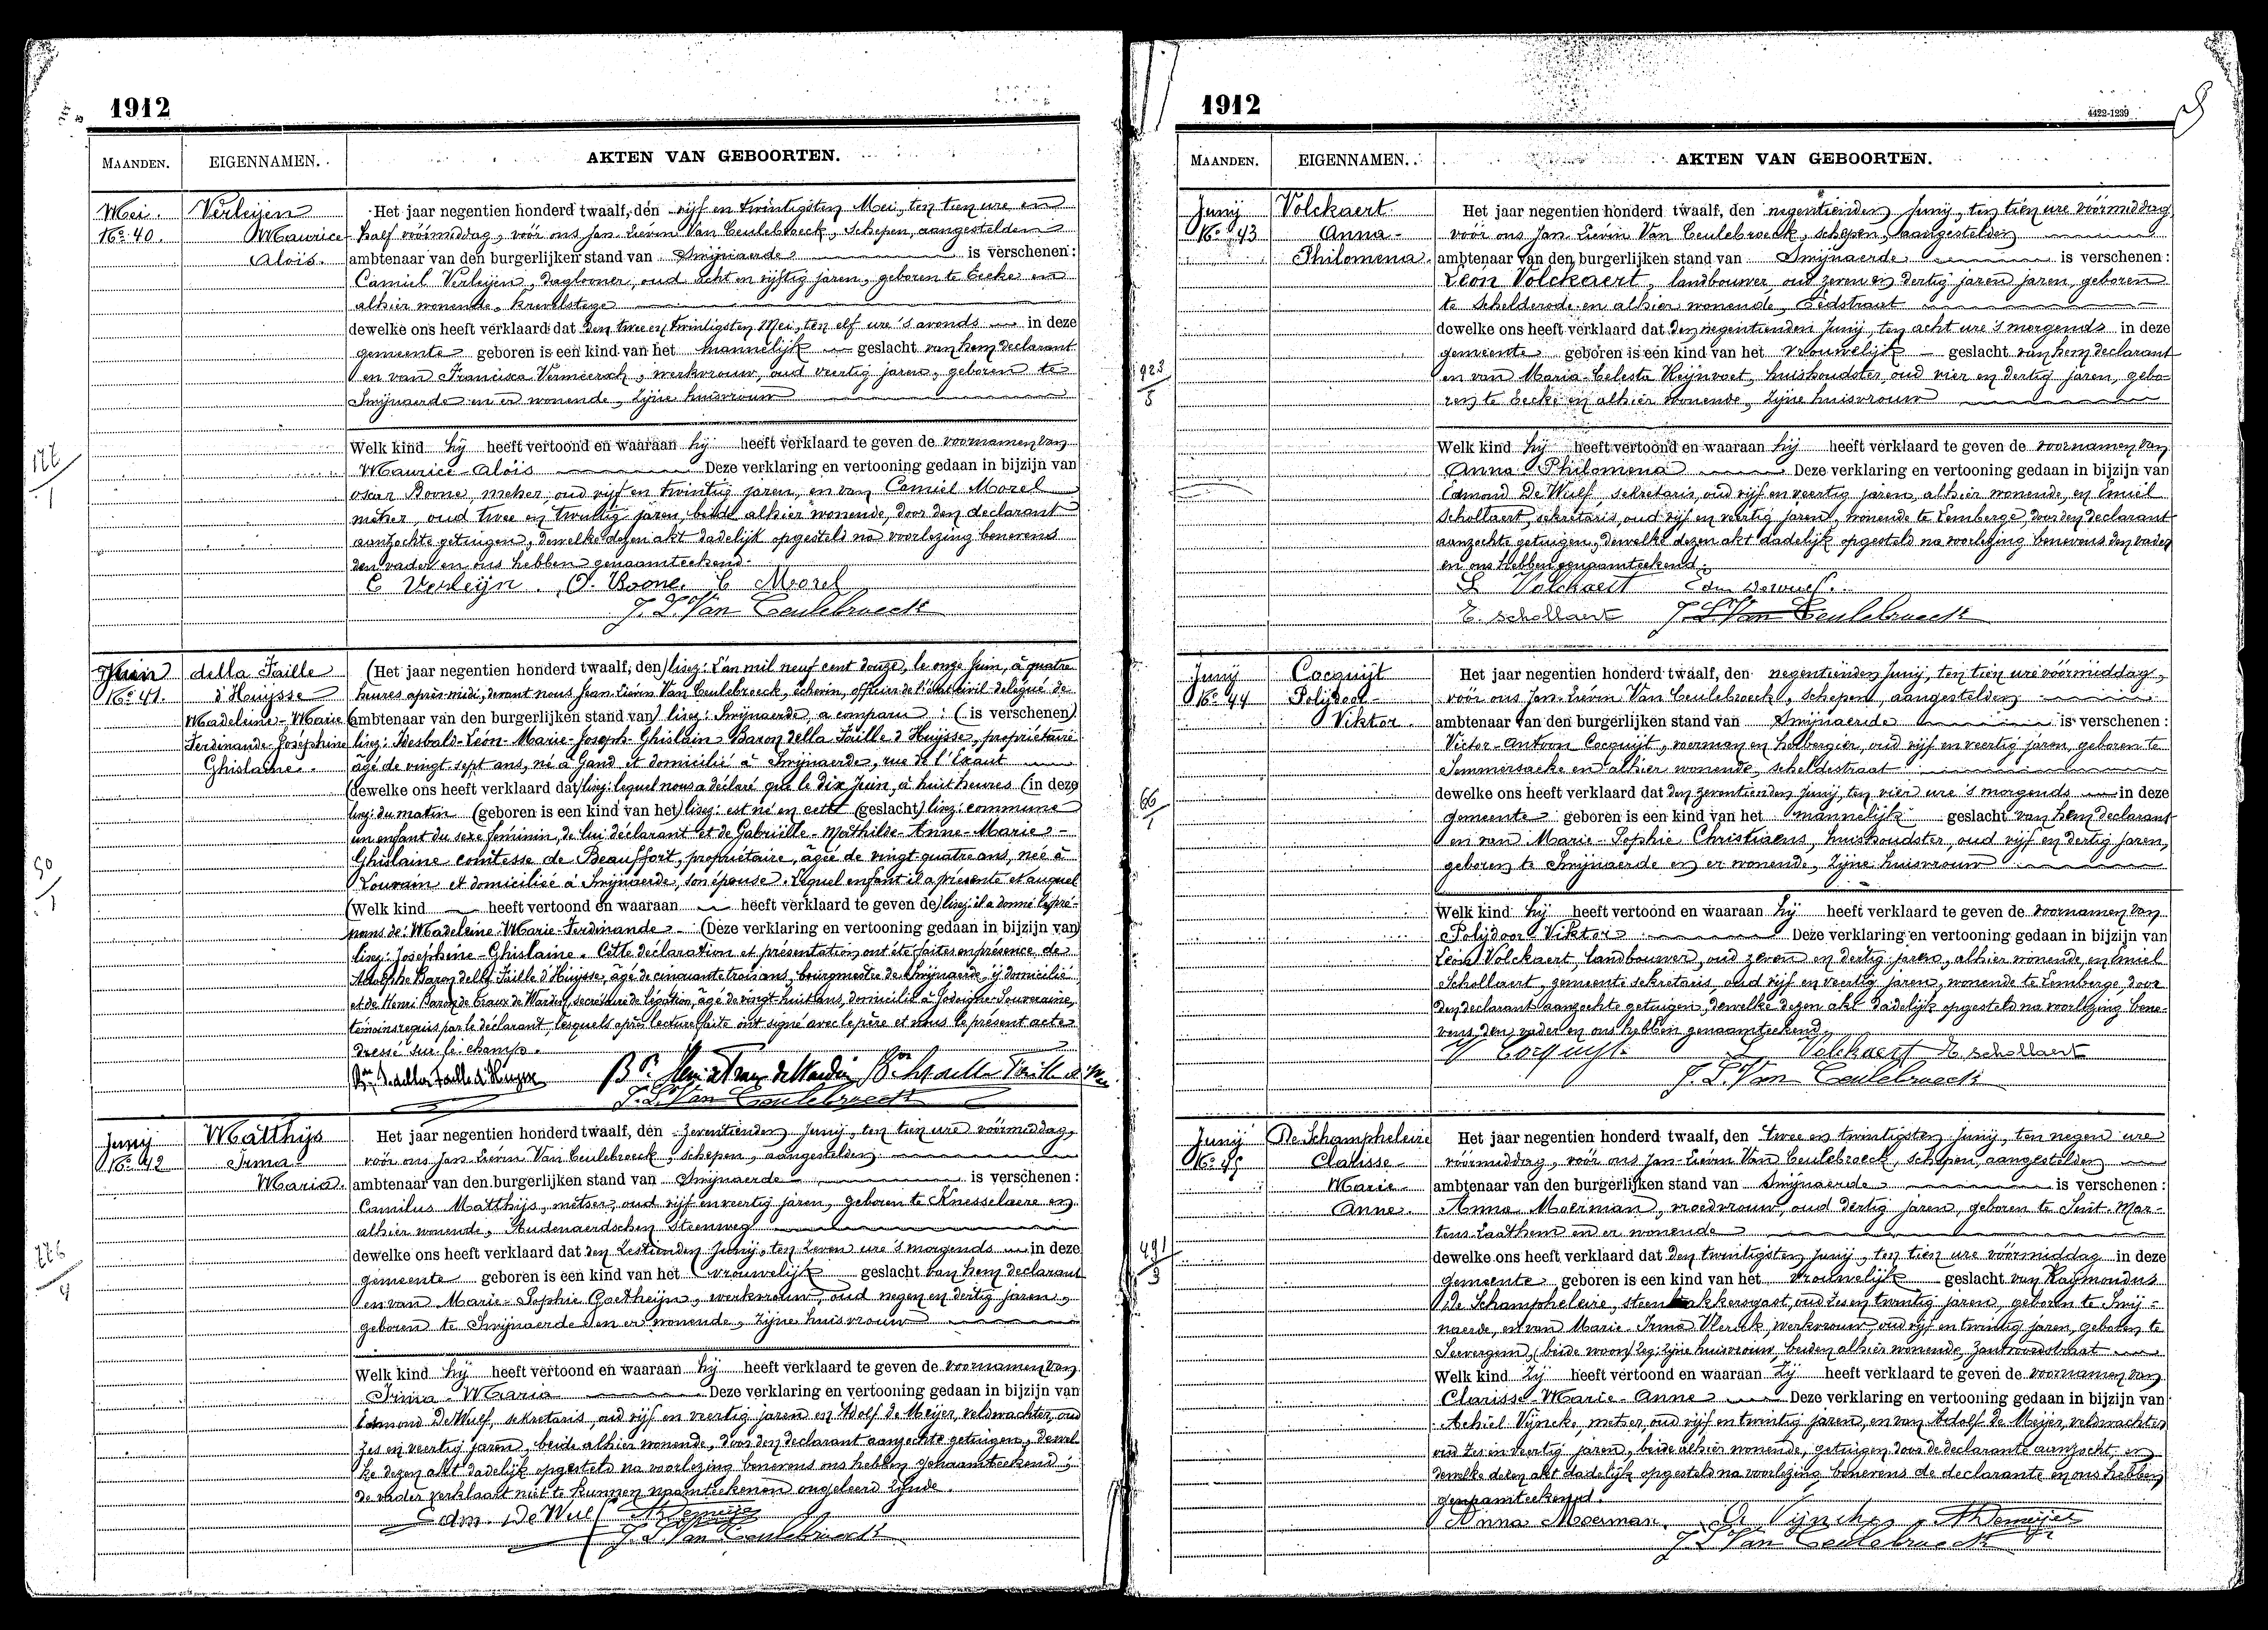 1912
MAANDEN. EIGENNAMEN. AKTEN VAN GEBOORTEN.
Mei.
No 40.
Verleijen
Maurice
Aloïs.
Het jaar negentien honderd twaalf, den vijf en twintigsten Mei, ten tien ure en
half vóórmiddag, vóór ons Jan Lievin Van Ceulebroeck, Schepen, aangestelden
ambtenaar van den burgerlijken stand van Swijnaerde is verschenen :
Camiel Verleijen, daglooner, oud acht en vijftig jaren, geboren te Eecke en
alhier wonende, krevelstege
dewelke ons heeft verklaard dat den twee en twintigsten Mei, ten elf ure 's avonds in deze
gemeente geboren is een kind van het mannelijk geslacht van hem declarant
en van Francisca Vermeersch, werkvrouw, oud veertig jaren, geboren te
Swijnaerde en er wonende, zijne huisvrouw
Welk kind hij heeft vertoond en waaraan hij heeft verklaard te geven de voornamen van
Maurice-Aloïs Deze verklaring en vertooning gedaan in bijzijn van
Oscar Boone, metser, oud vijf en twintig jaren, en van Camiel Morel
metser, oud twee en twintig jaren, beide alhier wonende, door den declarant
aanzochte getuigen, dewelke dezen akt dadelijk opgesteld na voorlezing benevens
den vader en ons hebben genaamteekend.
C Verleijn. O. Boone. C Morel
J. L. Van Ceulebroeck
Juin
No 41.
della Faille
d'Huijsse
Madeleine-Marie
Ferdinande-Joséphine
Ghislaine.
(Het jaar negentien honderd twaalf, den) lisez: L'an mil neuf cent douze, le onze Juin, à quatre
heures après-midi, devant nous Jean Liévin Van Ceulebroeck, échevin, officier de l'état civil délégué de
(ambtenaar van den burgerlijken stand van) lisez: Swijnaerde, a comparu : (is verschenen)
lisez: Idesbald-Léon-Marie-Joseph-Ghislain Baron della Faille d'Huijsse, propriétaire
âgé de vingt-sept ans, né à Gand et domicilié à Swijnaerde, rue de l'Escaut
(dewelke ons heeft verklaard dat) lisez: lequel nous a déclaré que le dix Juin, à huit heures (in deze
lisez: du matin (geboren is een kind van het) lisez: est né en cette (geslacht) lisez: commune
un enfant du sexe féminin, de lui déclarant et de Gabriëlle-Mathilde-Anne-Marie-
Ghislaine comtesse de Beauffort, propriétaire, âgée de vingt-quatre ans, née à
Louvain et domiciliée à Swijnaerde, son épouse. Lequel enfant il a présenté et auquel
(Welk kind heeft vertoond en waaraan heeft verklaard te geven de) lisez: il a donné les pré-
noms de: Madeleine-Marie-Ferdinande- (Deze verklaring en vertooning gedaan in bijzijn van)
lisez: Joséphine-Ghislaine. Cette déclaration et présentation ont été faites en présence de
Adolphe Baron della Faille d'Huijsse, âgé de cinquante trois ans, bourgmestre de Swijnaerde, ij domicilié
et de Henri Baron de Traux de Wardin, secrétaire de légation, âgé de vingt-huit ans, domicilié à Jodoigne-Souveraine,
témoins requis par le déclarant, lesquels après lecture faite ont signé avec le père et nous le présent acte
dressé sur le champ.
Bon I. della Faille d'Huysse Bon Henri de Traux de Wardin
J. L. Van Ceulebroeck
Junij
No 42
Matthijs
Irma-
Maria.
Het jaar negentien honderd twaalf, den zeventienden Junij, ten tien ure vóórmiddag,
vóór ons Jan Lievin Van Ceulebroeck, schepen, aangestelden
ambtenaar van den burgerlijken stand van Swijnaerde is verschenen :
Camilus Matthijs, metser, oud vijf en veertig jaren, geboren te Knesselaere en
alhier wonende, Audenaerdschen Steenweg
dewelke ons heeft verklaard dat den zestienden Junij, ten zeven ure 's morgends in deze
gemeente geboren is een kind van het vrouwelijk geslacht van hem declarant
en van Marie-Sophie Goetheijn, werkvrouw, oud negen en dertig jaren,
geboren te Swijnaerde en er wonende, zijne huisvrouw
Welk kind hij heeft vertoond en waaraan hij heeft verklaard te geven de voornamen van
Irma-Maria Deze verklaring en vertooning gedaan in bijzijn van
Edmond De Wulf, sekretaris, oud vijf en veertig jaren en Adolf de Meijer, veldwachter, oud
zes en veertig jaren, beide alhier wonende, door den declarant aanzochte getuigen, dewel
ke dezen akt dadelijk opgesteld na voorlezing benevens ons hebben genaamteekend;
de vader verklaart niet te kunnen naamteekenen ongeleerd zijnde.
Edm. De Wulf Ad Demeijer
J. L. Van Ceulebroeck
177
1
50
1
276
4
1912
4422-1239
MAANDEN. EIGENNAMEN. AKTEN VAN GEBOORTEN.
Junij
No 43
Volckaert
Anna-
Philomena.
Het jaar negentien honderd twaalf, den negentienden Junij, ten tien ure vóórmiddag
vóór ons Jan Lievin Van Ceulebroeck, schepen, aangestelden
ambtenaar van den burgerlijken stand van Swijnaerde is verschenen :
Léon Volckaert, landbouwer, oud zeven en dertig jaren jaren, geboren
te Schelderode en alhier wonende, Eedstraat
dewelke ons heeft verklaard dat den negentienden Junij, ten acht ure 's morgends in deze
gemeente geboren is een kind van het vrouwelijk geslacht van hem declarant
en van Maria-Celesta Heijnvoet, huishoudster, oud vier en dertig jaren, gebo-
ren te Eecke en alhier wonende, zijne huisvrouw
Welk kind hij heeft vertoond en waaraan hij heeft verklaard te geven de voornamen van
Anna-Philomena Deze verklaring en vertooning gedaan in bijzijn van
Edmond De Wulf sekretaris, oud vijf en veertig jaren, alhier wonende, en Emiel
Schollaert, sekretaris, oud vijf en veertig jaren, wonende te Lemberge, door den declarant
aanzochte getuigen, dewelke dezen akt dadelijk opgesteld na voorlezing benevens den vader
en ons hebben genaamteekend.
L Volckaert Edm Dewulf.
E. Schollaert J. L. Van Ceulebroeck
Junij
No 44
Cocquijt
Polijdoor-
Viktor.
Het jaar negentien honderd twaalf, den negentienden Junij, ten tien ure vóórmiddag,
vóór ons Jan Lievin Van Ceulebroeck, schepen, aangestelden
ambtenaar van den burgerlijken stand van Swijnaerde is verschenen :
Victor-Antoon Cocquijt, voerman en herbergier, oud vijf en veertig jaren, geboren te
Semmersacke en alhier wonende, scheldestraat
dewelke ons heeft verklaard dat den zeventienden Junij, ten vier ure 's morgends in deze
gemeente geboren is een kind van het mannelijk geslacht van hem declarant
en van Marie-Sophie Christiaens, huishoudster, oud vijf en dertig jaren,
geboren te Swijnaerde en er wonende, zijne huisvrouw
Welk kind hij heeft vertoond en waaraan hij heeft verklaard te geven de voornamen van
Polijdoor-Viktor Deze verklaring en vertooning gedaan in bijzijn van
Léon Volckaert, landbouwer, oud zeven en dertig jaren, alhier wonende, en Emiel
Schollaert, gemeente sekretaris, oud vijf en veertig jaren, wonende te Lemberge, door
den declarant aanzochte getuigen, dewelke dezen akt dadelijk opgesteld na voorlezing bene-
vens den vader en ons hebben genaamteekend.
V Cocquijt. L Volckaert E. Schollaert
J. L. Van Ceulebroeck
Junij
No 45
De Schampheleire
Clarisse-
Marie-
Anne.
Het jaar negentien honderd twaalf, den twee en twintigsten Junij, ten negen ure
vóórmiddag, vóór ons Jan-Lievin Van Ceulebroeck, schepen, aangestelden
ambtenaar van den burgerlijken stand van Swijnaerde is verschenen :
Anna Moerman, vroedvrouw, oud dertig jaren, geboren te Sint-Mar-
tens-Laathem en er wonende
dewelke ons heeft verklaard dat den twintigsten Junij, ten tien ure vóórmiddag in deze
gemeente geboren is een kind van het vrouwelijk geslacht van Raijmondus
De Schampheleire, steenbakkersgast, oud zes en twintig jaren, geboren te Swij-
naerde, en van Marie-Irma Vlerick, werkvrouw, oud vijf en twintig jaren, geboren te
Seevergem, (beide woon) leg: zijne huisvrouw, beiden alhier wonende, Zantvoordestraat
Welk kind zij heeft vertoond en waaraan zij heeft verklaard te geven de voornamen van
Clarisse-Marie-Anne Deze verklaring en vertooning gedaan in bijzijn van
Achiel Vijncke, metser, oud vijf en twintig jaren, en van Adolf De Meijer, veldwachter
oud zes en veertig jaren, beide alhier wonende, getuigen door de declarante aanzocht, en
dewelke dezen akt dadelijk opgesteld na voorlezing benevens de declarante en ons hebben
genaamteekend.
Anna Moerman. A Vijncke Ad Demeijer
J. L. Van Ceulebroeck
1923
5
66
1
491
3